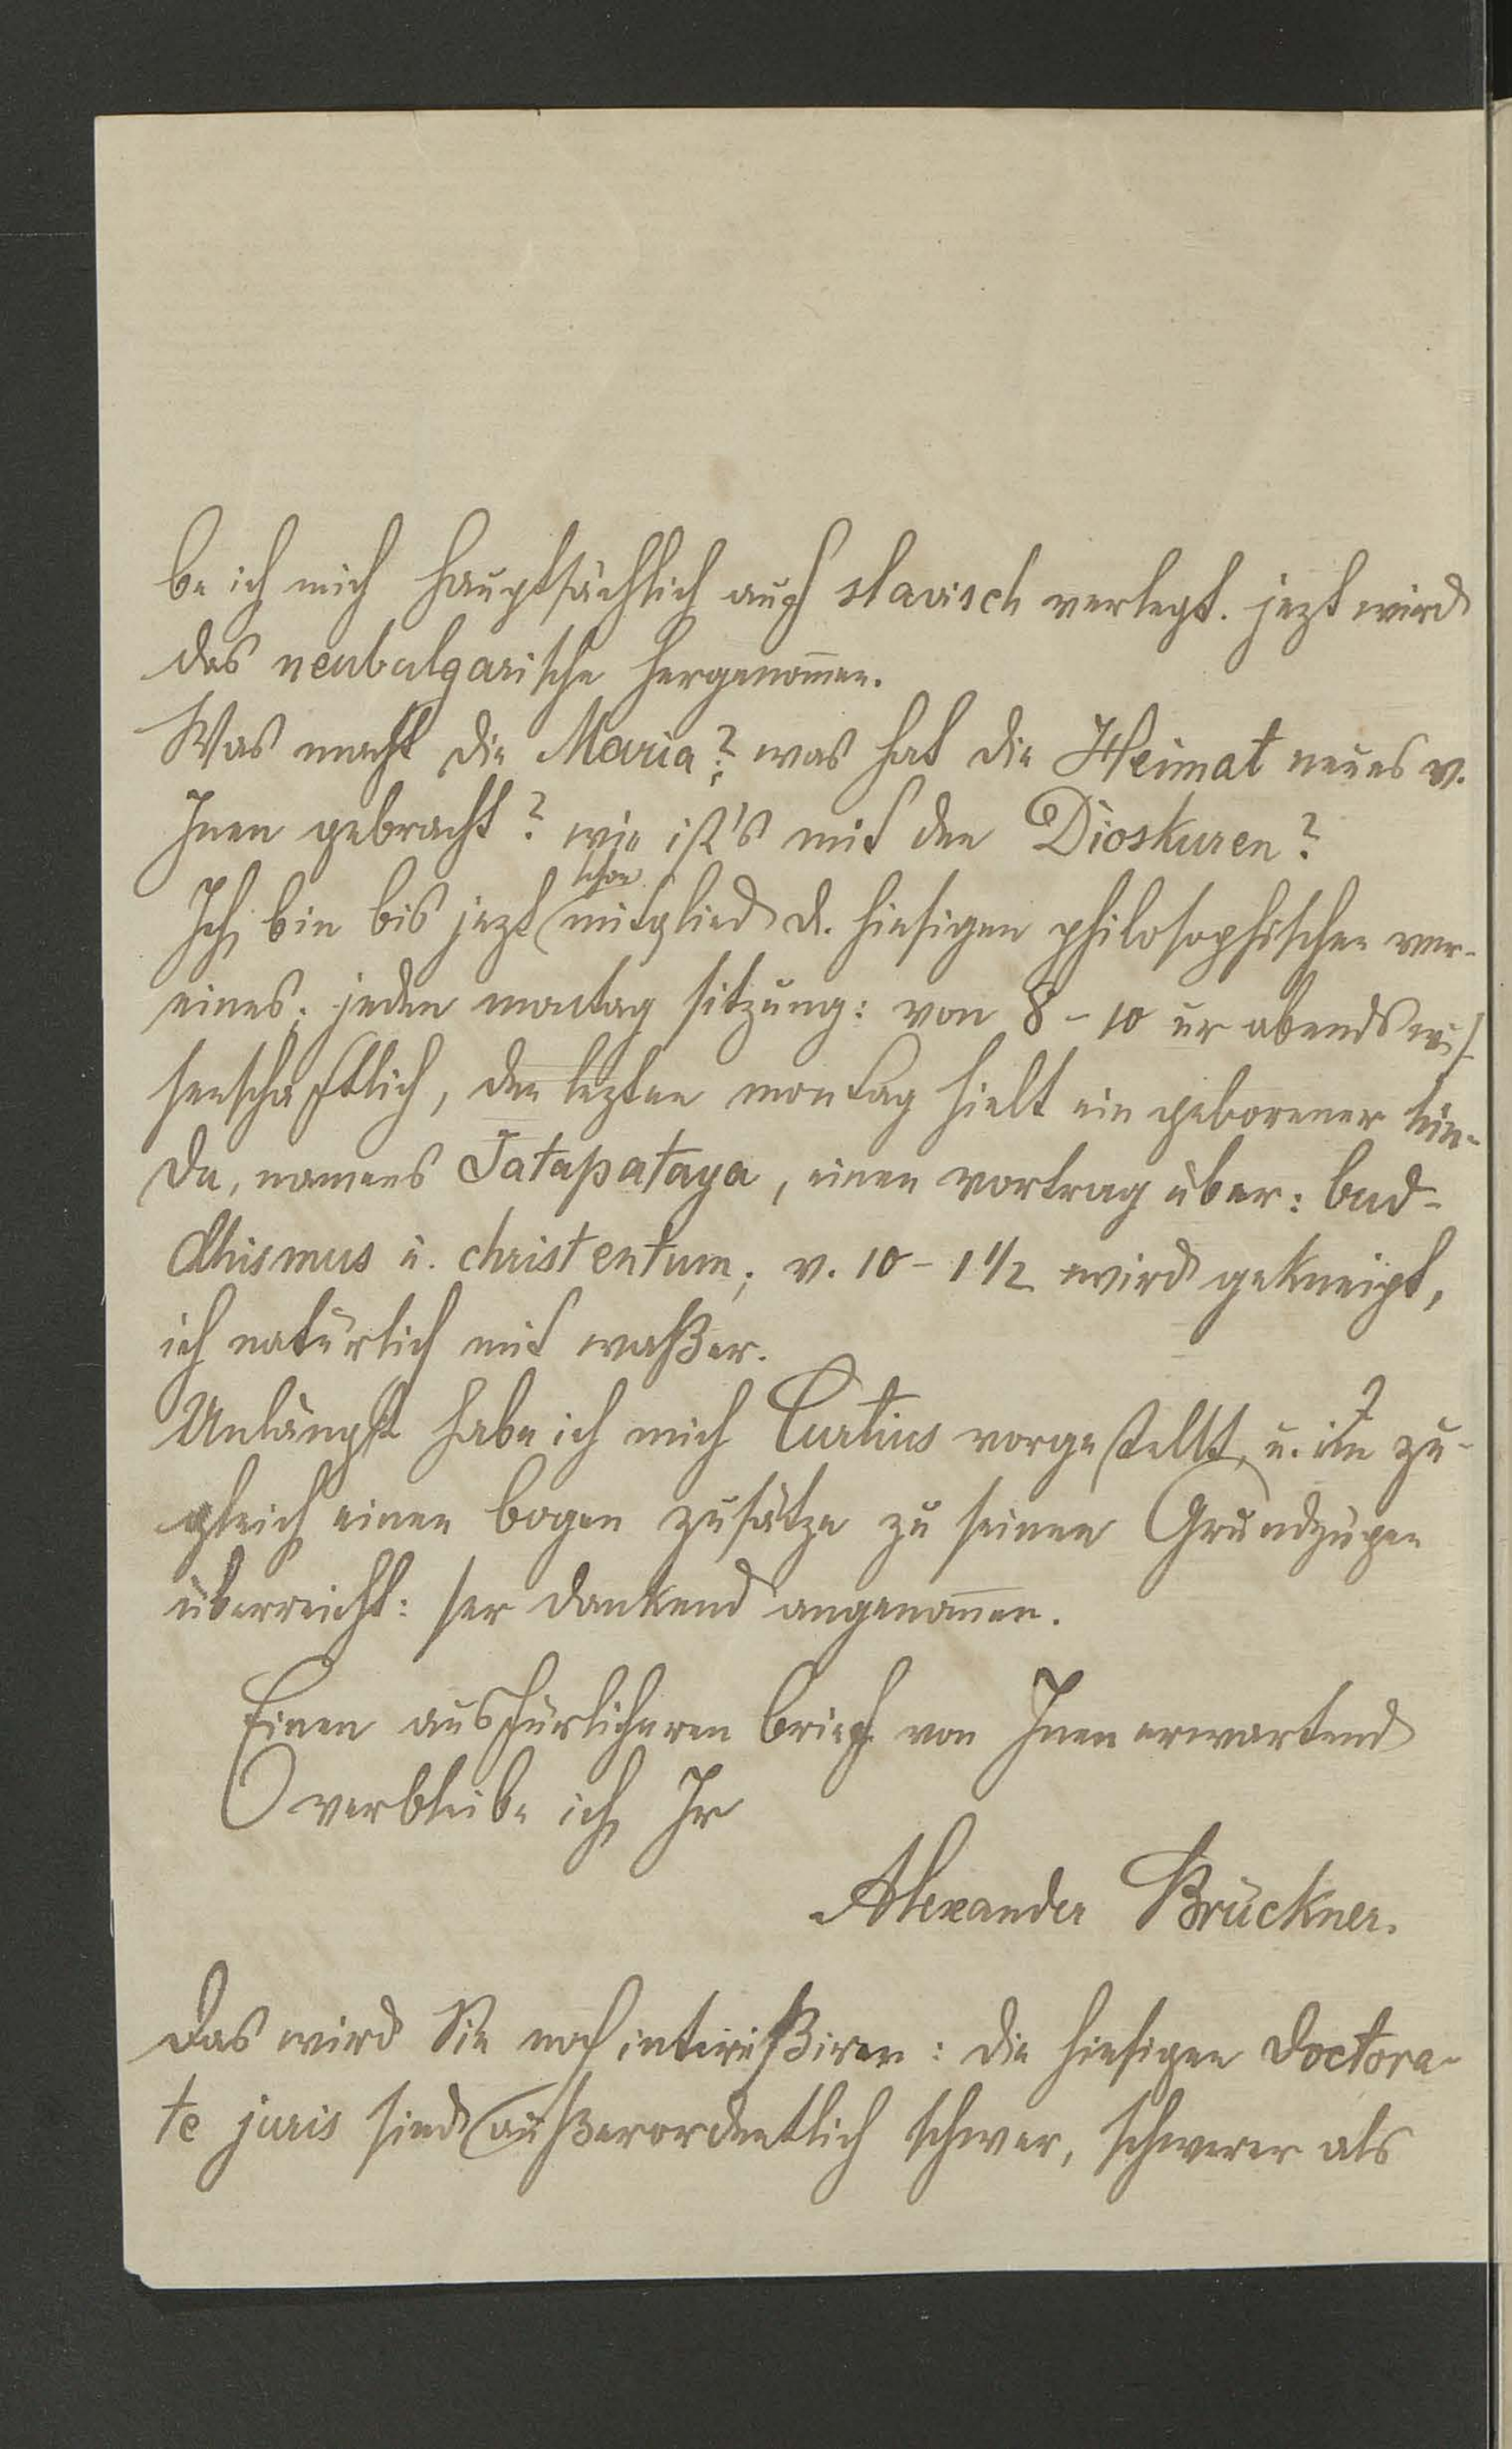 be ich mich hauptsächlich auf slavisch verlegt. jezt wird
das neubulgarische hergenom̄en.
Was macht die Maria? was hat die Heimat neues v.
Inen gebracht? wie ist's mit den Dioskuren?
schon
Ich bin bis jezt mitglied d. hiesigen philosophischen ver-
eines; jeden montag sitzung: von 8 - 10 ur abends wis-
senschaftlich, den lezten montag hielt ein geborener hin-
du, namens Jatapataya, einen vortrag über: bud-
dhismus u. christentum; v. 10 - 1 1/2 wird gekneipt,
ich natürlich mit waßer.
Unlängst habe ich mich Curtius vorgestellt, u. im zu-
gleich einen bogen zusätze zu seinen Grundzügen
überreicht: ser dankend angenom̄en.
Einen ausfürlicheren brief von Inen erwartend
verbleibe ich Ir
Alexander Brückner.
Das wird Sie noch intereßiren: die hiesigen doctora-
te juris sind außerordentlich schwer, schwerer als